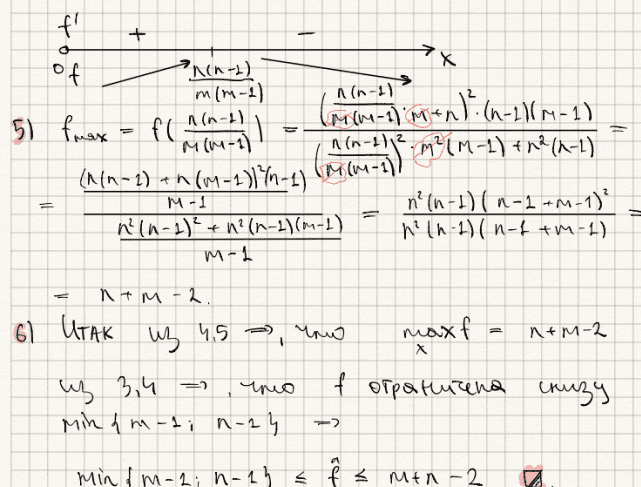 f'
+ −
0 f n(n-1)/m(m-1) x
5) f_max = f(n(n-1)/m(m-1)) = (n(n-1)/m(m-1) · m + n)² · (n-1)(m-1) / (n(n-1)/m(m-1))² · m²(m-1) + n²(n-1) =
= (n(n-1) + n(m-1))²(n-1)/m-1 / n²(n-1)² + n²(n-1)(m-1)/m-1 = n²(n-1)(n-1+m-1)² / n²(n-1)(n-1+m-1) =
= n+m-2.
6) Итак из 4,5 ⇒, что max_x f = n+m-2
из 3,4 ⇒, что f ограничена снизу
min{m-1; n-1} ⇒
min{m-1; n-1} ≤ f̂ ≤ m+n-2